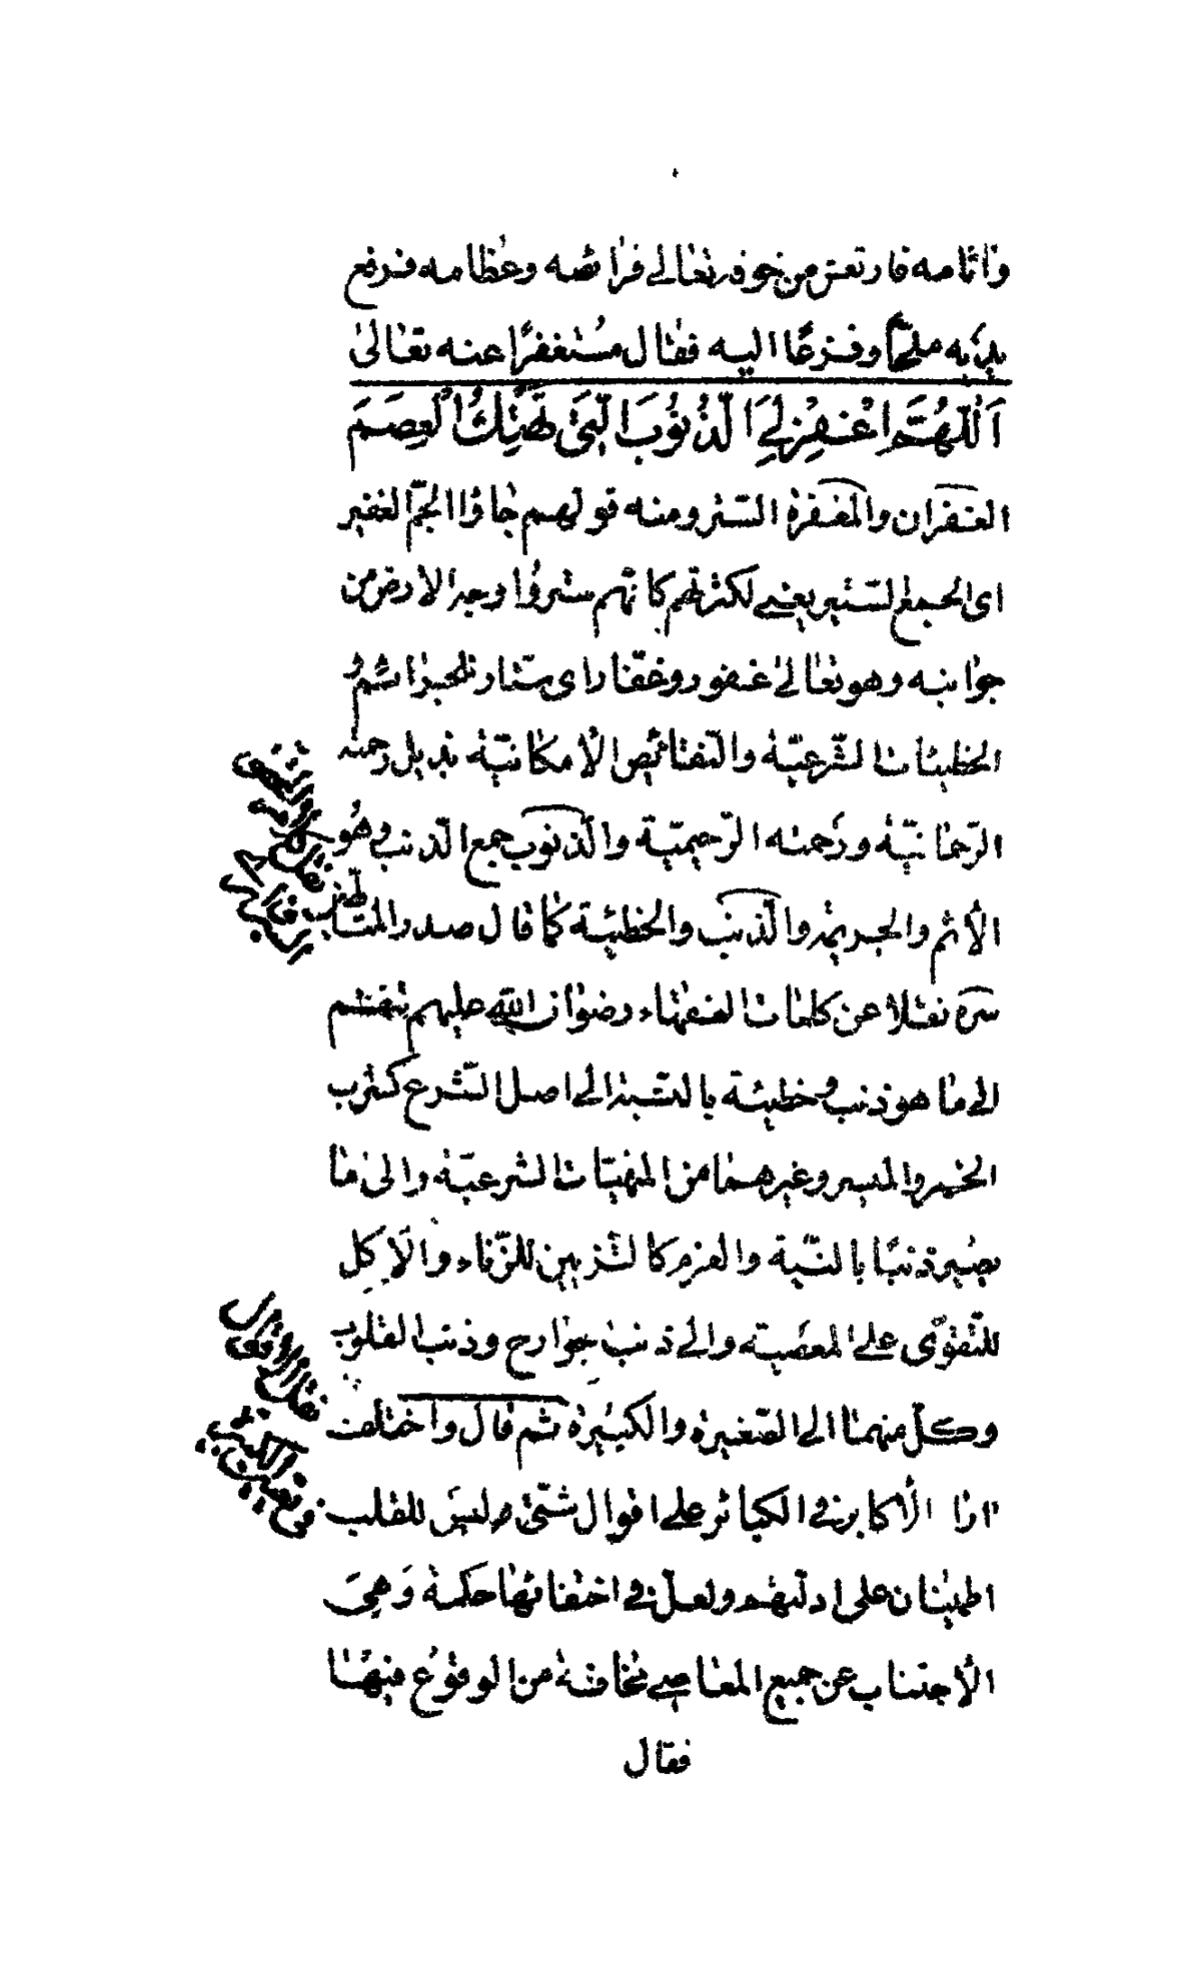 واثامه فارتعش من خوفه تعالى فرائصه وعظامه فرفع
يديه ملحّا وفزعًا اليه فقال مُستغفرًا عنه تعالىٰ
اَللّٰهُمَّ اغْفِرْ لِيَ الذُّنُوبَ الَّتِي تَهْتِكُ الْعِصَمَ
الغفران والمغفرة الستر ومنه قولهم جاؤا الجمّ الغفير
اى الجمع الستير يعنى لكثرتهم كانّهم ستروا وجه الارض من
جوانبه وهو تعالىٰ غفور وغفّار اى ستّار
الخطيئات الشّرعيّة والنقائص الامكانيّة بذيل رحمته
الرّحمانيّة ورَحمته الرّحيميّة والذّنوب جمع الذنب وهُو
الأثم والجريمة والذنب والخطيئة كما قال صدر المتألهين
سره نقلا عن كلمات الفقهاء رضوان الله عليهم ينقسم
الى ما هو ذنب وخطيئة بالنسبة الى اصل الشّرع كشرب
الخمر والميسر وغيرهما من المنهيّات الشرعيّة والىٰ ما
يصير ذنبًا بالنيّة والعزم كالتّزيين للزّناء والأكل
للتّقوّى على المعصيته والى ذنب جوارح وذنب القلوب
وكلّ منهما الى الصّغيرة والكبيرة ثم قال واختلفت
اراء الأكابر فى الكبائر على اقوال شتّى وليسَ للقلب
اطمينان على ادلّتهم ولعلّ فى اختفائها حكمة وَهِيَ
الأجتناب عن جميع المعاصى مخافة من الوقوع فيها
فقال
نقل الاقوال
فى تعيين الكبائر